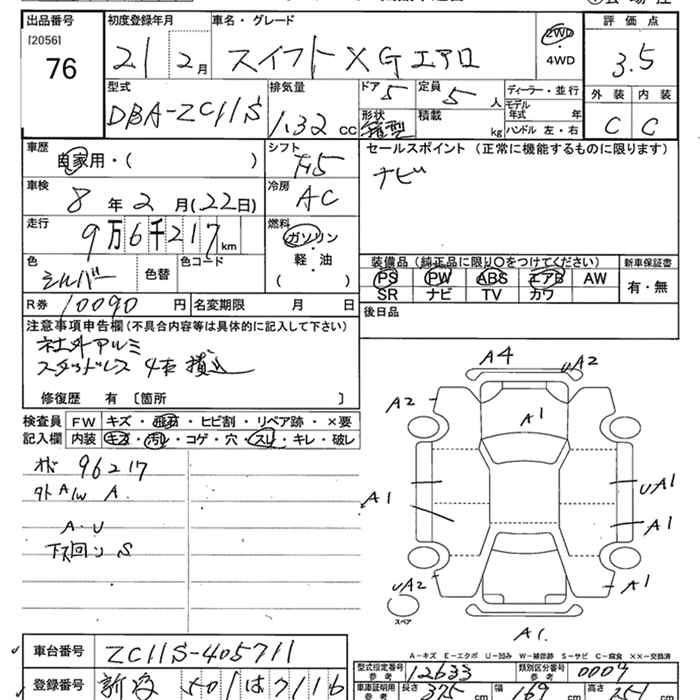 出品番号 初度登録年月 車名・グレード 評価点
[2056] 76 21 2月 スイフト XG エアロ 2WD ・ 4WD 3.5
型式 排気量 ドア 5 定員 5 人 ディーラー・並行 外装 内装
DBA-ZC11S 1.32 cc 形状 箱型 積載 kg モデル年式 年 ハンドル 左・右 C C
車歴 自家用・( ) シフト F5 セールスポイント (正常に機能するものに限ります)
車検 8年2月(22日) 冷房 AC ナビ
走行 9万6千217km 燃料 ガソリン・軽・油 ( )
色 シルバー 色替 色コード
装備品 (純正品に限り○をつけてください) 新車保証書
PS PW ABS エアB AW 有・無
SR ナビ TV カワ
R券 10090円 名変期限 月 日 後日品
注意事項申告欄 (不具合内容等は具体的に記入して下さい)
社外アルミ
スタッドレス 4本 積込
修復歴 有 〔箇所 〕
検査員 FW キズ・飛石・ヒビ割・リペア跡・×要
記入欄 内装 キズ・汚レ・コゲ・穴・スレ・キレ・破レ
96217
外A/W A.
A・U
下回り S
A4
UA2
A2
A1
A1
UA1
A1
UA2
A1
スペア
A1.
A-キズ E-エクボ U-凹み W-補修跡 S-サビ C-腐食 XX-交換済
車台番号 ZC11S-405711
型式指定番号 参考 12633 類別区分番号 参考 0004
登録番号 501 は 7116
車庫証明用 参考 長さ 375 cm 幅 169 cm 高さ 151 cm